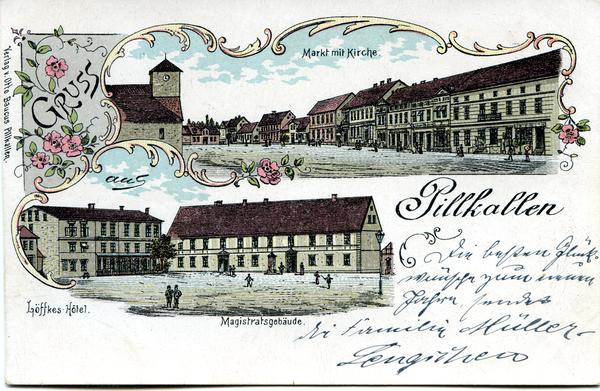 Verlag v. Otto Baucus Pillkallen.
Gruss
aus
Pillkallen
Markt mit Kirche.
Löffkes-Hôtel.
Magistratsgebäude.
Die besten Glück-
wünsche zum neuen
Jahre sendet
die Familie Müller-